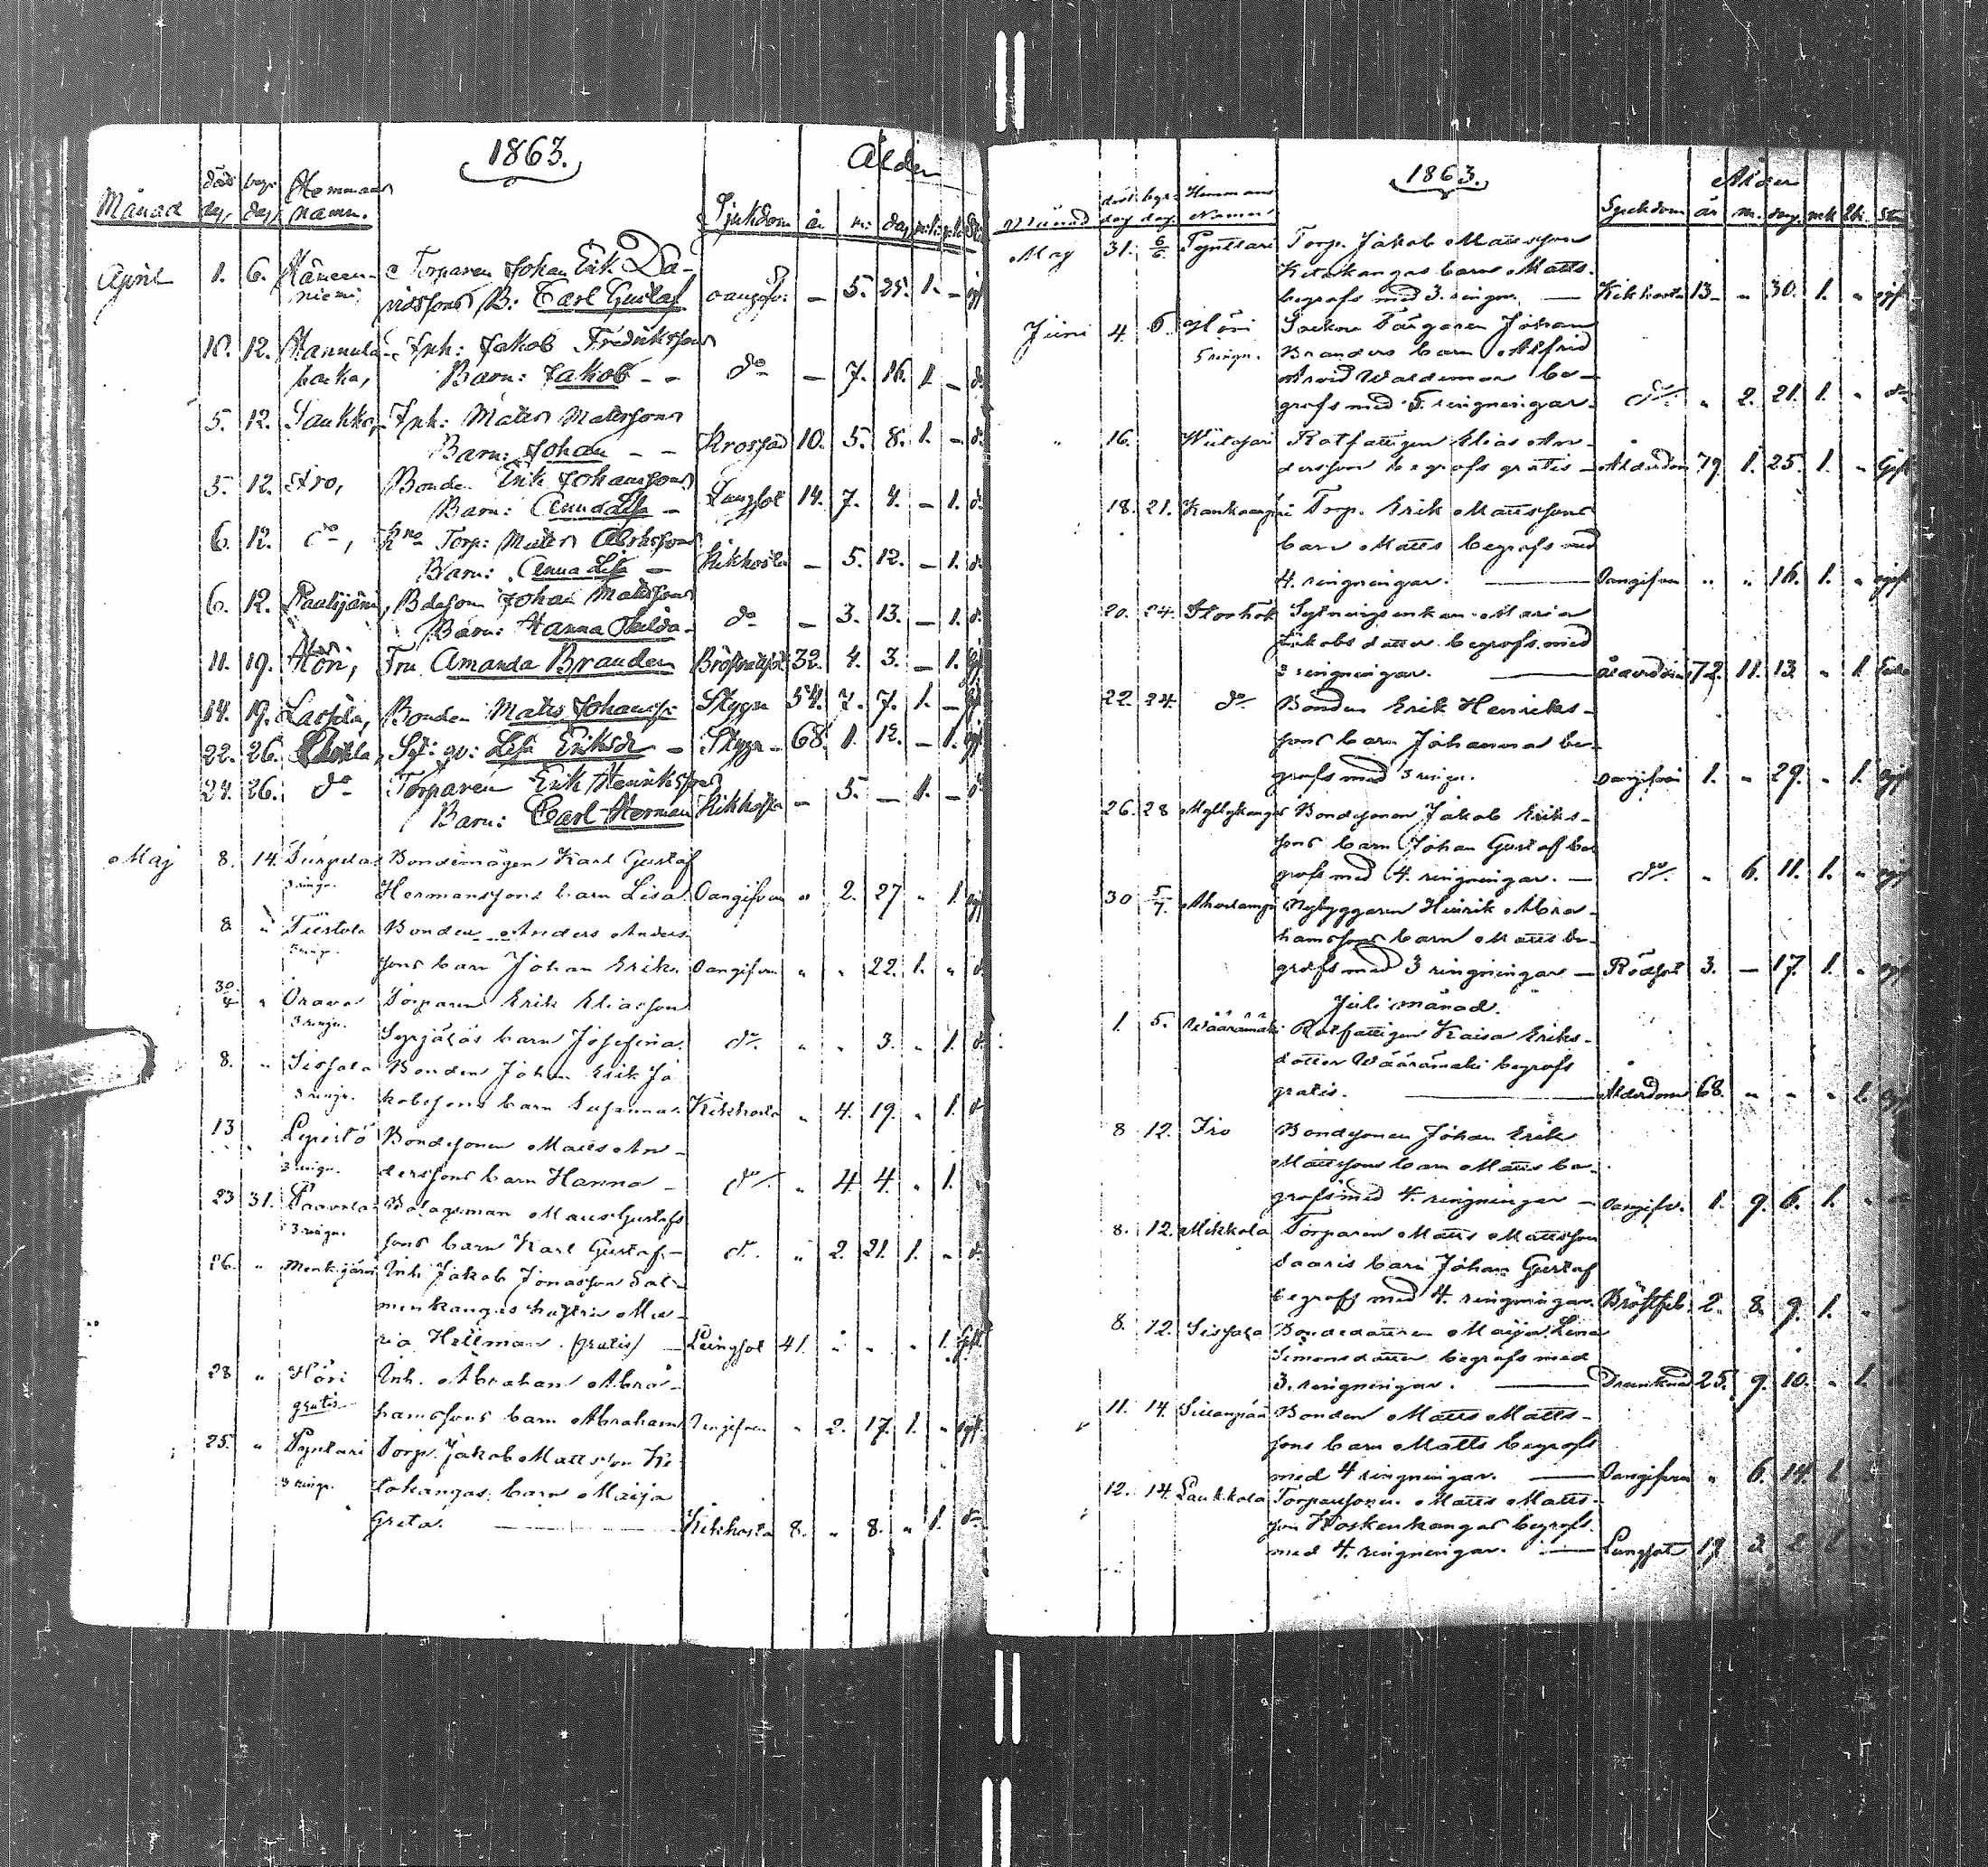 1863.
Ålder
Månad död dag begr dag Hemmans namn. Sjukdom år m. dag mk qk Stå
April 1. 6. Hämeen- Torparen Johan Erik Da-
niemi, vidssons B: Carl Gustaf oangifv: — 5. 25. 1. — ogf
10. 12. Hannula- Inh: Jakob Fredrikssons
backa, Barn: Jakob - - do — 7. 16. 1. — do
5. 12. Saukko, Inh: Matts Matssons
Barn: Johan - - Krossad 10. 5. 8. 1. — do
5. 12. Aro, Bonden Erik Johanssons
Barn: Anna Lisa - Lungsot 14. 7. 4. — 1. do
6. 12. do, Torp: Matts
Barn: Anna Lisa - Kikhosta — 5. 12. — 1. do
6. 12. Bdeson Johan Matssons
Barn: Hanna Hulda - do — 3. 13. — 1. do
11. 19. Höri, Fru Amanda Brander 32. 4. 3. — 1. gf
14. 19. Lassila, Bonden Matts Johanss: Styggn 54. 7. 7. 1. — gf
22. 26. Syt: gv: Lisa Eriksdr - Styggn - 68. 1. 12. — 1. ogf
24. 26. do Torparen Erik Henrikssons
Barn: Carl Herman Kikhosta — 5. — 1. — do
Maj 8. 14. Bondemågen Karl Gustaf
3 ringn. Hermanssons barn Lisa. Oangifven " 2. 27 " 1. ogf
8 " Tiistola Bonden Anders Anders-
3 ringn. sons barn Johan Erik. Oangifven " " 22. 1. " do
30/4 " Orava Torparen Erik Eliasson
3 ringn. Syrjäläs barn Josefina. do. " " 3. " 1. do
8. " Sissala Bonden Johan Erik Ja
3 ringn. kobssons barn Susanna. Kikhosta " 4. 19. " 1. do
13 " Lepistö Bondsonen Matts An-
3 ringn. derssons barn Hanna - do. " 4. 4. " 1.
23 31. Paavola Bolagsman Matts Gustafs
3 ringn. sons barn Karl Gustaf - do. " 2. 21. 1. " do
26. " Menkijärvi Inh. Jakob Jonasson Sal-
menkangas hustru Ma-
ria Hellman. (gratis) - Lungsot 41. " " " 1. Gift.
28 " Höri Inh. Abraham Abra-
gratis hamssons barn Abraham Oangifven " 2. 17. 1. " ogf.
25. " Pynttari Torp. Jakob Mattsson Ki
3 ringn. tokangas barn Maija
Greta. — Kikhosta 8. " 8. " 1. do
1863.
Ålder
Månad död dag begr. dag. Hemmans Namn Sjukdom år m. dag. mk Qk. Stå
Maj 31. 6/6 Pynttari Torp. Jakob Mattsson
Kitokangas barn Matts.
begrofs med 3. ringn. — Kikhosta 13. " 30. 1. " ogf
Juni 4. 6. Höri Socken Färgaren Johan
5 ringn. Branders barn Alfrid
Arvid Waldemar be-
grofs med 5. ringningar. do. " 2. 21. 1. " do
" 16. Wiitajari Rotfattigen Elias An-
dersson begrofs gratis - Ålderdom 79. 1. 25. 1. " Gift
18. 21. Torp. Erik Mattssons
barn Matts begrofs med
4. ringningar. — Oangifven " " 16. 1. " ogft
20. 24. Sytningsenkan Maria
Jakobs dotter begrofs med
3 ringningar. — ålderdom 72. 11. 13. " 1.
22. 24. do. Bonden Erik Henriks-
sons barn Johanna be-
grofs med 3 ringn. oangifven 1. " 29. " 1. ogft
26. 28 Myllykangas Bondsonen Jakob Eriks-
sons barn Johan Gustaf be
grofs med 4. ringningar. — do. " 6. 11. 1. " ogf
30 5/7. Nybyggaren Henrik Abra-
hamssons barn Matts be-
grofs med 3 ringningar - Rödsot 3. — 17. 1. " ogf
Juli månad.
1. 5. Wäärämäki Rotfattigen Kaisa Eriks-
dotter Wäärämäki begrofs
gratis. — Ålderdom 68. " " " 1. ogf
8 12. Iro Bondsonen Johan Erik
Mattssons barn Matts be-
grofs med 4. ringningar - Oangifv. 1. 9. 6. 1.
8. 12. Mikkola Torparen Matts Mattsson
Saaris barn Johan Gustaf
begrofs med 4. ringningar. Bröstfeb. 2. 8. 9. 1.
8. 12. Sissala Bondedottren Maija Lena
Simonsdotter begrofs med
3. ringningar. — Drunknad 25. 9. 10. " 1.
11. 14. Sillanpää Bonden Matts Matts-
sons barn Matts begrofs
med 4 ringningar. — Oangifven " 6. 14. 1
12. 14. Laukkola Torparsonen Matts Matts-
son Koskenkangas begrofs.
med 4. ringningar. — Lungsot 19. 2. 2. 1